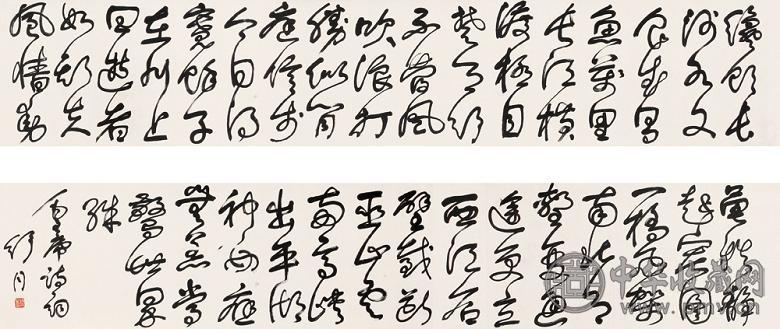 纔飲長
沙水又
食武昌
魚萬里
長江橫
渡極目
楚天舒
不管風
吹浪打
勝似閒
庭信步
今日得
寬餘子
在川上
曰逝者
如斯夫
風檣動
龜蛇靜
起宏圖
一橋飛架
南北天
塹變通
途更立
西江石
壁截斷
巫山雲
雨高峽
出平湖
神女應
無恙當
驚世界
殊
毛主席詩詞
舒同
中华收藏网